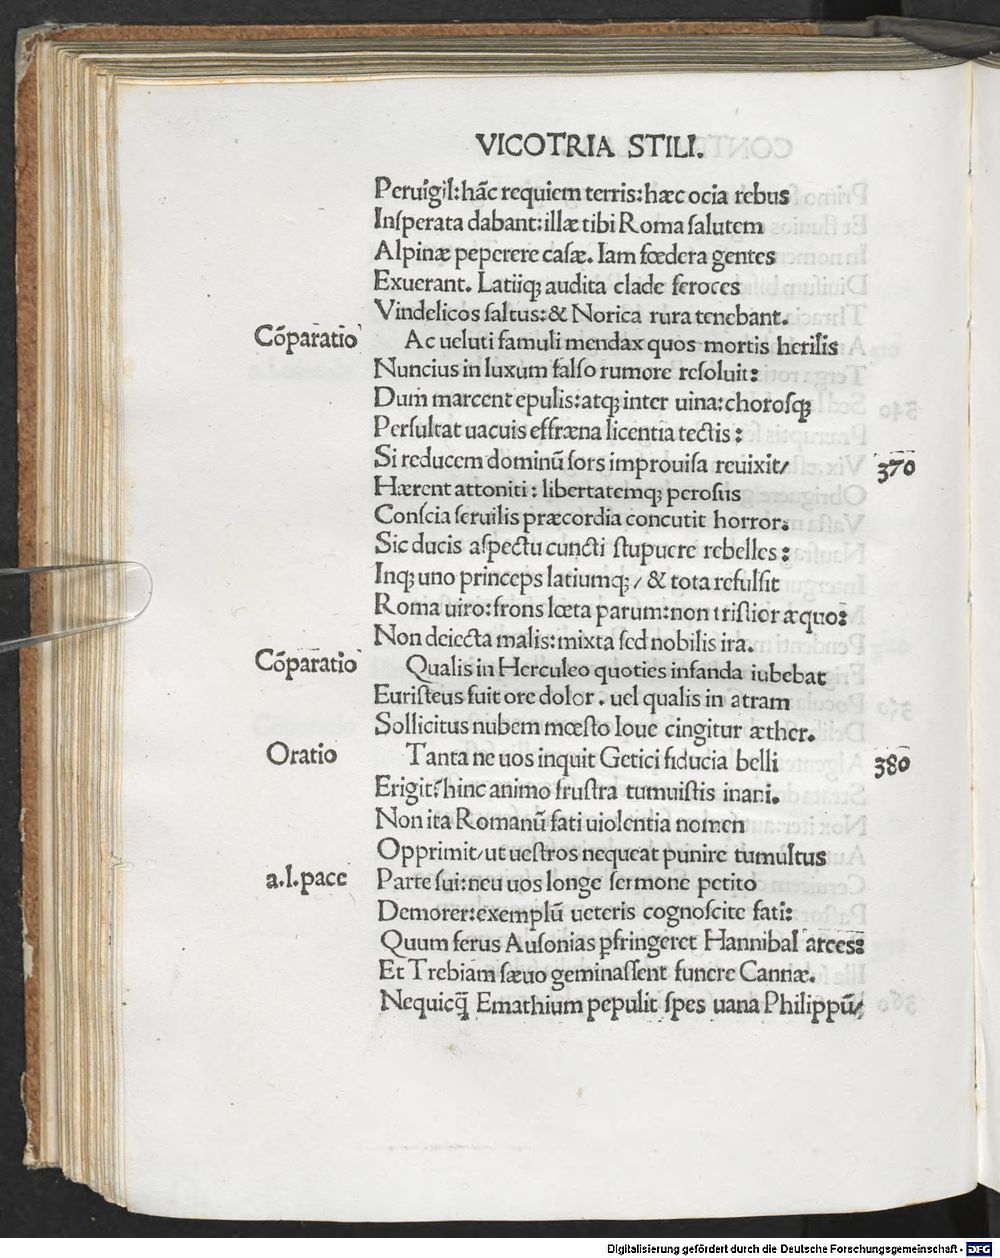 VICOTRIA STILI.
Peruigil: hãc requiem terris: hæc ocia rebus
Inſperata dabant: illæ tibi Roma ſalutem
Alpinæ peperere caſæ. Iam fœdera gentes
Exuerant. Latiiqꝫ audita clade feroces
Vindelicos ſaltus: & Norica rura tenebant.
Cõparatio
Ac ueluti famuli mendax quos mortis herilis
Nuncius in luxum falſo rumore reſoluit:
Dum marcent epulis: atqꝫ inter uina: choroſqꝫ
Perſultat uacuis effræna licentia tectis:
Si reducem dominũ ſors improuiſa reuixit/
370
Hærent attoniti: libertatemqꝫ peroſus
Conſcia ſeruilis præcordia concutit horror:
Sic ducis aſpectu cuncti ſtupuere rebelles:
Inqꝫ uno princeps latiumqꝫ/ & tota refulſit
Roma uiro: frons lœta parum: non triſtior æquo:
Non deiecta malis: mixta ſed nobilis ira.
Cõparatio
Qualis in Herculeo quoties infanda iubebat
Euriſteus fuit ore dolor. uel qualis in atram
Sollicitus nubem mœſto Ioue cingitur æther.
Oratio
Tanta ne uos inquit Getici fiducia belli
380
Erigit? hinc animo fruſtra tumuiſtis inani.
Non ita Romanũ fati uiolentia nomen
Opprimit/ ut ueſtros nequeat punire tumultus
a.l.pace
Parte ſui: neu uos longe ſermone petito
Demorer: exemplũ ueteris cognoſcite fati:
Quum ferus Auſonias ꝑfringeret Hannibal arces:
Et Trebiam ſæuo geminaſſent funere Cannæ.
Nequicq̃ Emathium pepulit ſpes uana Philippũ/
Digitalisierung gefördert durch die Deutsche Forschungsgemeinschaft - DFG